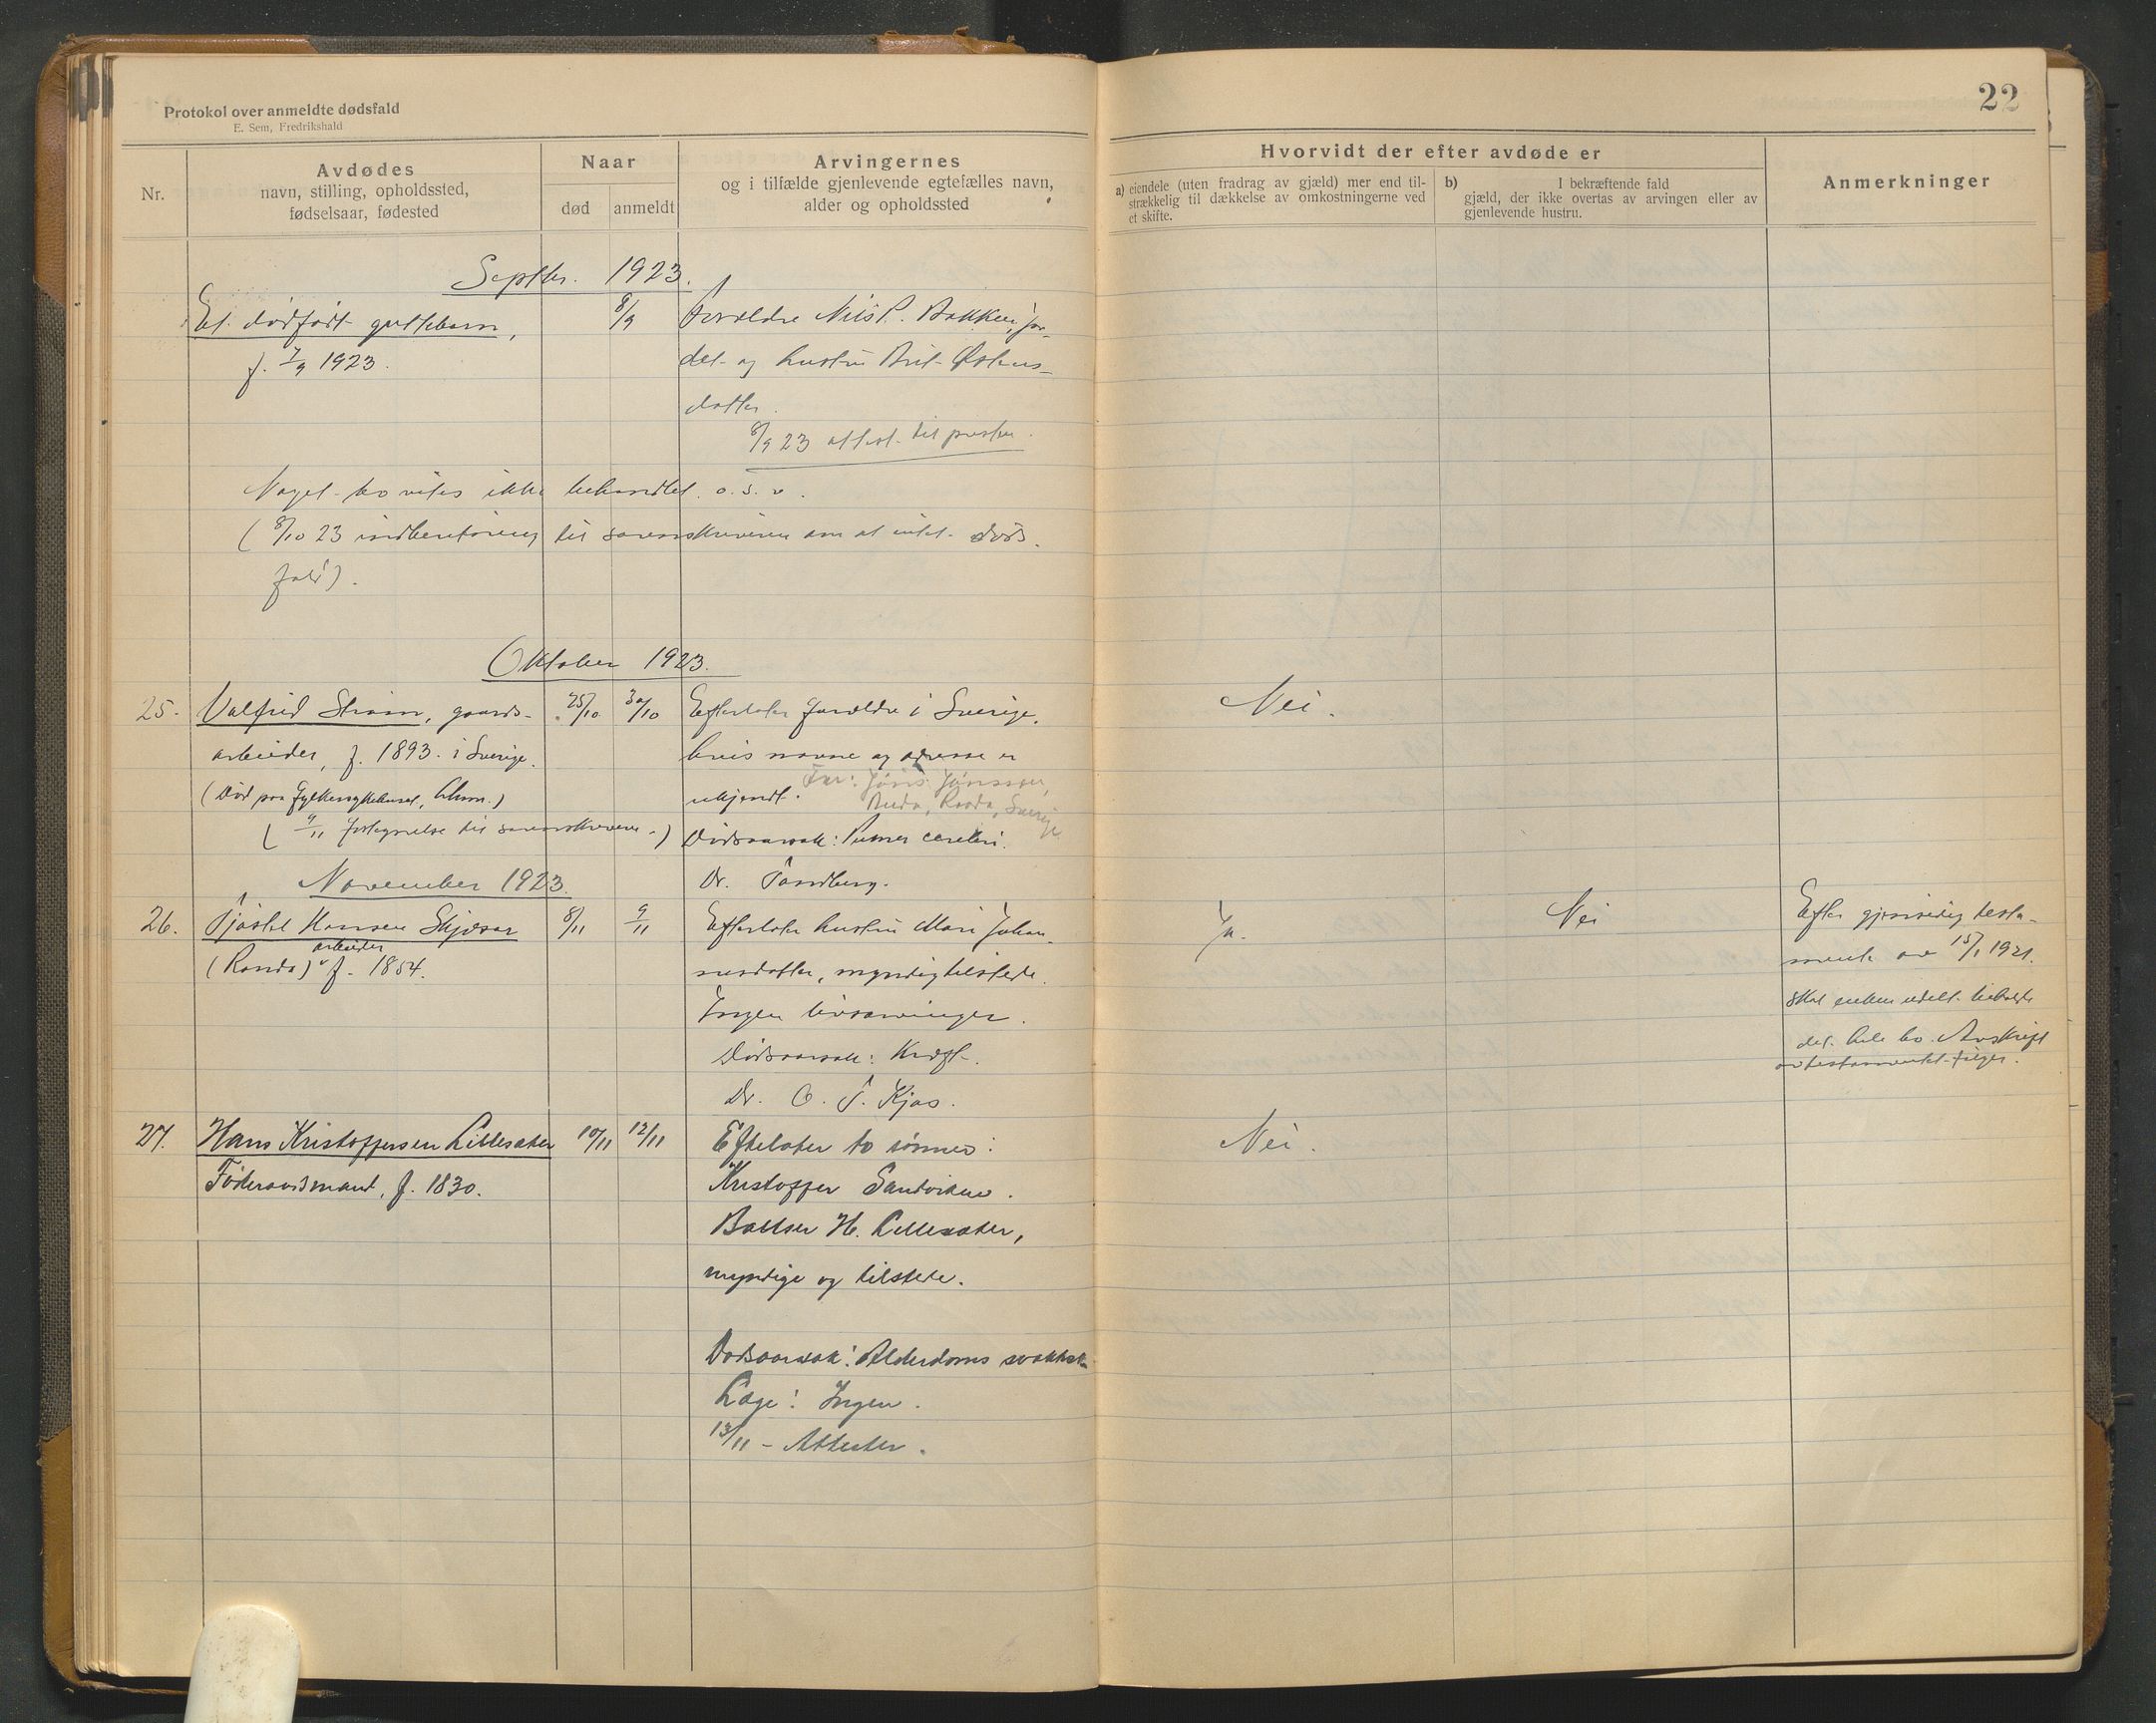 Protokol over anmeldte dødsfald
E. Sem, Fredrikshald
22
Nr.
Avdødes
navn, stilling, opholdssted,
fødselsaar, fødested
Naar
død
anmeldt
Arvingernes
og i tilfælde gjenlevende egtefælles navn,
alder og opholdssted
Hvorvidt der efter avdøde er
a) eiendele (uten fradrag av gjæld) mer end til-
strækkelig til dækkelse av omkostningerne ved
et skifte.
b) I bekræftende fald
gjæld, der ikke overtas av arvingen eller av
gjenlevende hustru.
Anmerkninger
Septbr. 1923.
Et dødfødt guttebarn,
f. 7/9 1923.
8/9
Foreldre Nils P. Bakken,
det og hustru Brit Østens-
datter.
8/9 23 attest til presten.
Noget bo vites ikke behandlet o.s.v.
(8/10 23 indberetning til sorenskriveren om at intet døds-
fald).
Oktober 1923.
25.
Valfrid Strøm, gaards-
arbeider, f. 1893 i Sverige.
(Død paa Fylkessykehuset,
(9/11 til sorenskriveren.)
25/10
30/10
Efterlater foreldre i Sverige,
hvis navne og adresse er
ukjendt.
Far: Jöns Jönsson,
Råda, Sverige
Dødsaarsak: Tumor cerebri.
Dr. Sandberg.
Nei.
November 1923.
26.
Tjøstel Hansen Skjøsar
(Randa) arbeider f. 1854.
8/11
9/11
Efterlater hustru Mari Johan-
nesdatter, myndig tilstede.
Ingen livsarvinger.
Dødsaarsak: Kræft.
Dr. O. T. Kjos.
Ja.
Nei
Efter gjensidig testa-
mente av 15/1 1921.
skal enken udelt beholde
det hele bo. Avskrift
av testamentet følger.
27.
Hans Kristoffersen Lillesæter
Føderaadsmand, f. 1830.
10/11
12/11
Efterlater to sønner:
Kristoffer Sandviken.
Baltser H. Lillesæter,
myndige og tilstede.
Dødsaarsak: Alderdoms svakhet
Læge: Ingen.
13/11 - Attester.
Nei.